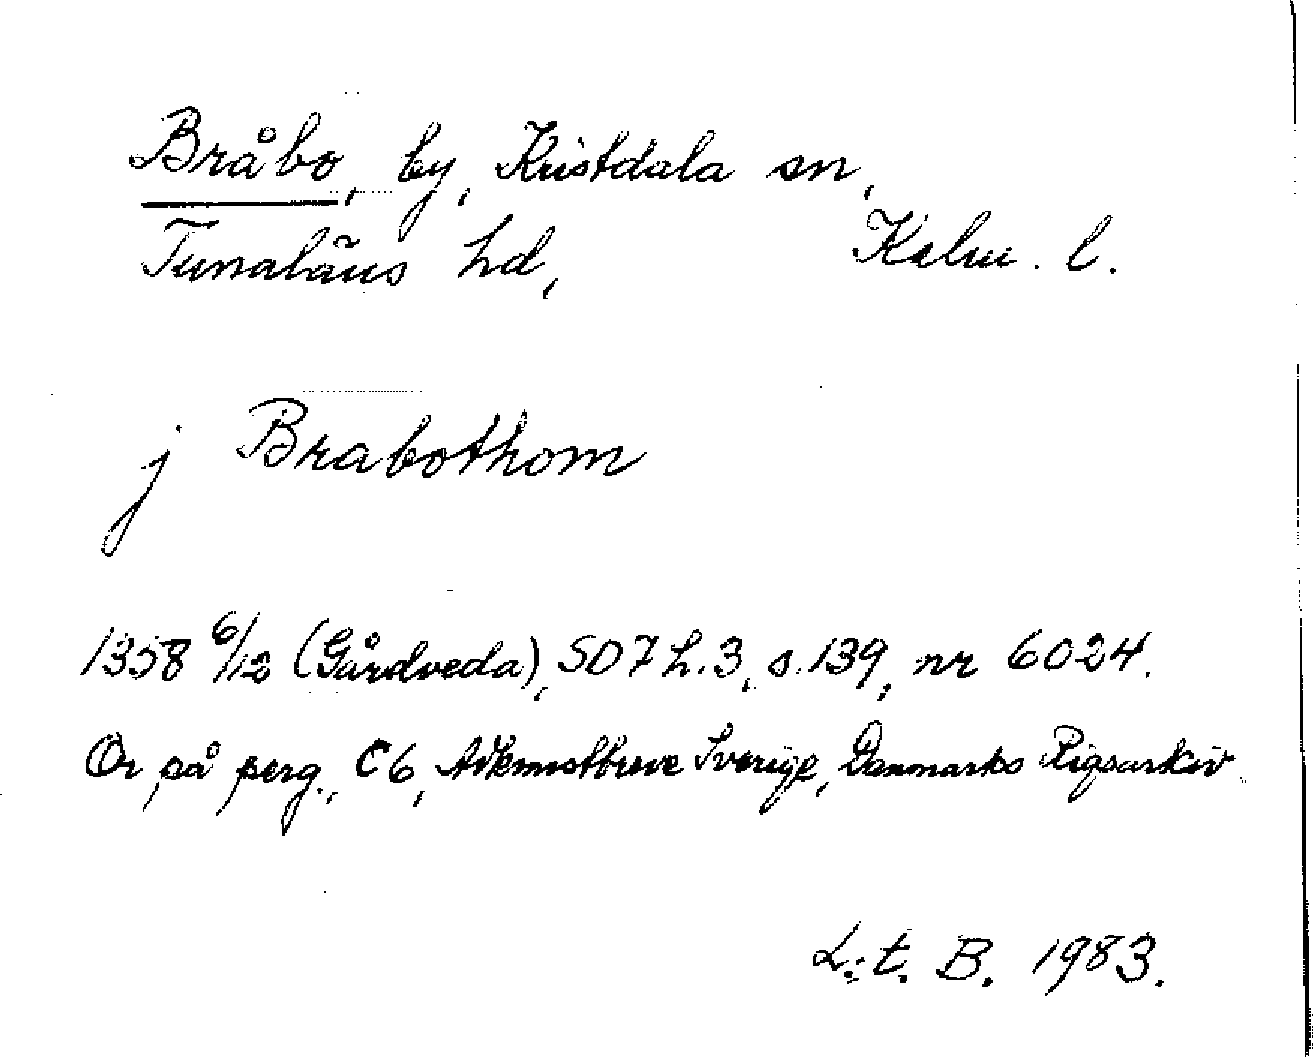 Bråbo, by, Kristdala sn,
Tunaläns hd, Kalm. l.
j Brabothom
1358 6/12 (Gårdveda), SD 7 h. 3, s. 139, nr 6024.
Or på perg., C6, Adkomstbreve Sverige, Danmarks Rigsarkiv
L:t. B. 1983.